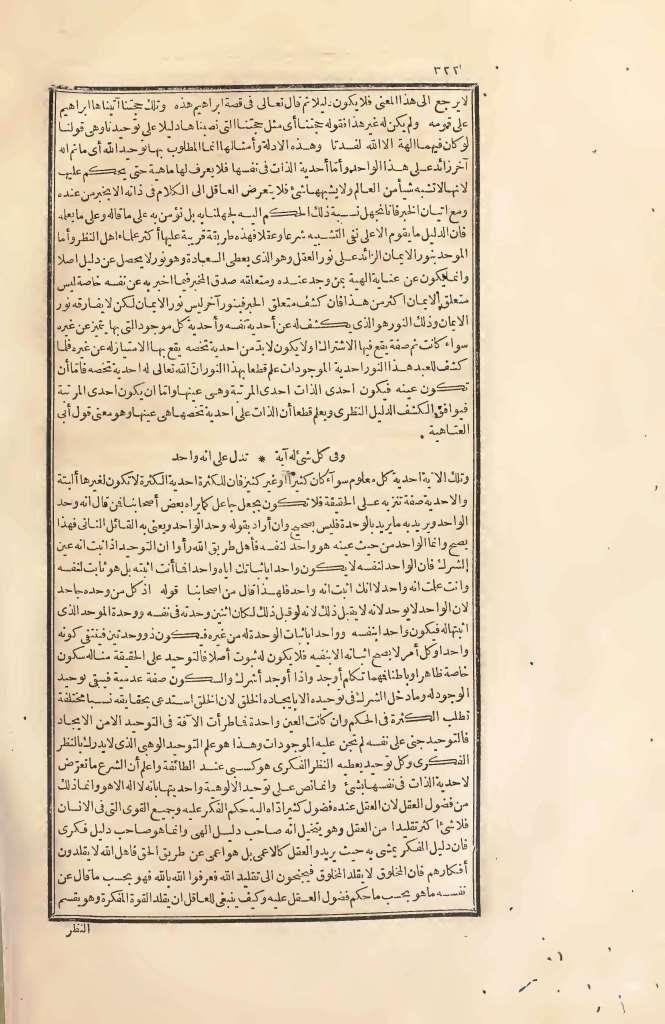 ٣٢٢
لا يرجع الى هذا المعنى فلا يكون دليلا ثم قال تعالى فى قصة ابراهيم هذه وتلك حجتنا آتيناها ابراهيم
على قومه ولم يكن له غير هذا فقوله حجتنا أى مثل حجتنا التى نصبناها دليلا على توحيدنا وهى قولنا
لو كان فيهما آلهة الا الله لفسدتا وهذه الادلة وأمثالها انما المطلوب بها توحيد الله أى ما ثم اله
آخر زائد على هذا الواحد وأما أحدية الذات فى نفسها فلا يعرف لها ماهية حتى يحكم عليها
لانها لا تشبه شيأ من العالم ولا يشبهها شئ فلا يتعرض العاقل الى الكلام فى ذاته الا بخبر من عنده
ومع اتيان الخبر فانا نجهل نسبة ذلك الحكم اليه لجهلنا به بل نؤمن به على ما قاله وعلى ما يعلمه
فان الدليل ما يقوم الا على نفى التشبيه شرعا وعقلا فهذه طريقة قريبة عليها أكثر علماء اهل النظر وأما
الموحد بنور الايمان الزائد على نور العقل وهو الذى يعطى السعادة وهو نور لا يحصل عن دليل اصلا
وانما يكون عن عناية الهية بمن وجد عنده ومتعلقه صدق المخبر فيما اخبر به عن نفسه خاصة ليس
متعلق الايمان اكثر من هذا فان كشف متعلق الخبر فبنور آخر ليس نور الايمان لكن لا يفارقه نور
الايمان وذلك النور هو الذى يكشف له عن أحدية نفسه وأحدية كل موجود التى بها يتميز عن غيره
سواء كانت ثم صفة يقع فيها الاشتراك اولا يكون لابد من احدية تخصه يقع بها الامتياز له عن غيره فلما
كشف للعبد هذا النور احدية الموجودات علم قطعا بهذا النور ان الله تعالى له احدية تخصه فاما أن
تكون عينه فيكون احدى الذات احدى المرتبة وهى عينها واما ان يكون احدى المرتبة
فيوافق الكشف الدليل النظرى ويعلم قطعا أن الذات على احدية تخصها هى عينها وهو معنى قول أبى
العتاهية
وفى كل شئ له آية * تدل على انه واحد
وتلك الاية احدية كل معلوم سوآء كان كثيرا أو غير كثير فان للكثرة احدية الكثرة لا تكون لغيرها ألبتة
والاحدية صفة تنزيه على الحقيقة فلا تكون بجعل جاعل كما يراه بعض أصحابنا فمن قال انه وحد
الواحد ويريد به ما يريد بالوحدة فليس بصحيح وان أراد بقوله وحد الواحد ويعنى به القائل الثانى فهذا
يصح وانما الواحد من حيث عينه هو واحد لنفسه فأهل طريق الله رأوا ان التوحيد اذا ثبت انه عين
الشرك فان الواحد لنفسه لا يكون واحدا باثباتك اياه واحدا فما أنت اثبته بل هو ثابت لنفسه
وانت علمت انه واحد لا انك اثبت انه واحد فلهذا قال من اصحابنا قوله اذ كل من وحده جاحد
لان الواحد لا يوحد لانه لا يقبل ذلك لانه لو قبل ذلك لكان اثنين وحدته فى نفسه ووحدة الموحد الذى
اثبتها له فيكون واحدا بنفسه وواحدا باثبات الوحدة له من غيره فيكون ذو وحدتين فينتفى كونه
واحدا وكل أمر لا يصح اثباته الا بنفيه فلا يكون له ثبوت أصلا فالتوحيد على الحقيقة مناله سكون
خاصة ظاهرا وباطنا فهما تكلم أوجد واذا أوجد أشرك والسكون صفة عدمية فيبقى توحيد
الوجود له وما دخل الشرك فى توحيده الا بايجاده الخلق لان الخلق استدعى بحقايقه نسبا مختلفة
تطلب الكثرة فى الحكم وان كانت العين واحدة فما طرأت الآفة فى التوحيد الا من الايجاد
فالتوحيد جنى على نفسه لم تجن عليه الموجودات وهذا هو علم التوحيد الوهبى الذى لا يدرك بالنظر
الفكرى وكل توحيد يعطيه النظر الفكرى هو كسبى عند الطائفة واعلم أن الشرع ما تعرض
لاحدية الذات فى نفسها بشئ وانما نص على توحيد الالوهية واحديتها بانه لا اله الا هو وانما ذلك
من فضول العقل لان العقل عنده فضول كثير اداه اليه حكم الفكر عليه وجميع القوى التى فى الانسان
فلا شئ اكثر تقليدا من العقل وهو يتخيل انه صاحب دليل الهى وانما هو صاحب دليل فكرى
فان دليل الفكر يمشى به حيث يريد والعقل كالاعمى بل هو اعمى عن طريق الحق فاهل الله لا يقلدون
أفكارهم فان المخلوق لا يقلد المخلوق فيجنحون الى تقليد الله فعرفوا الله بالله فهو بحسب ما قال عن
نفسه ما هو بحسب ما حكم فضول العقل عليه وكيف ينبغى للعاقل ان يقلد القوة المفكرة وهو يقسم
النظر